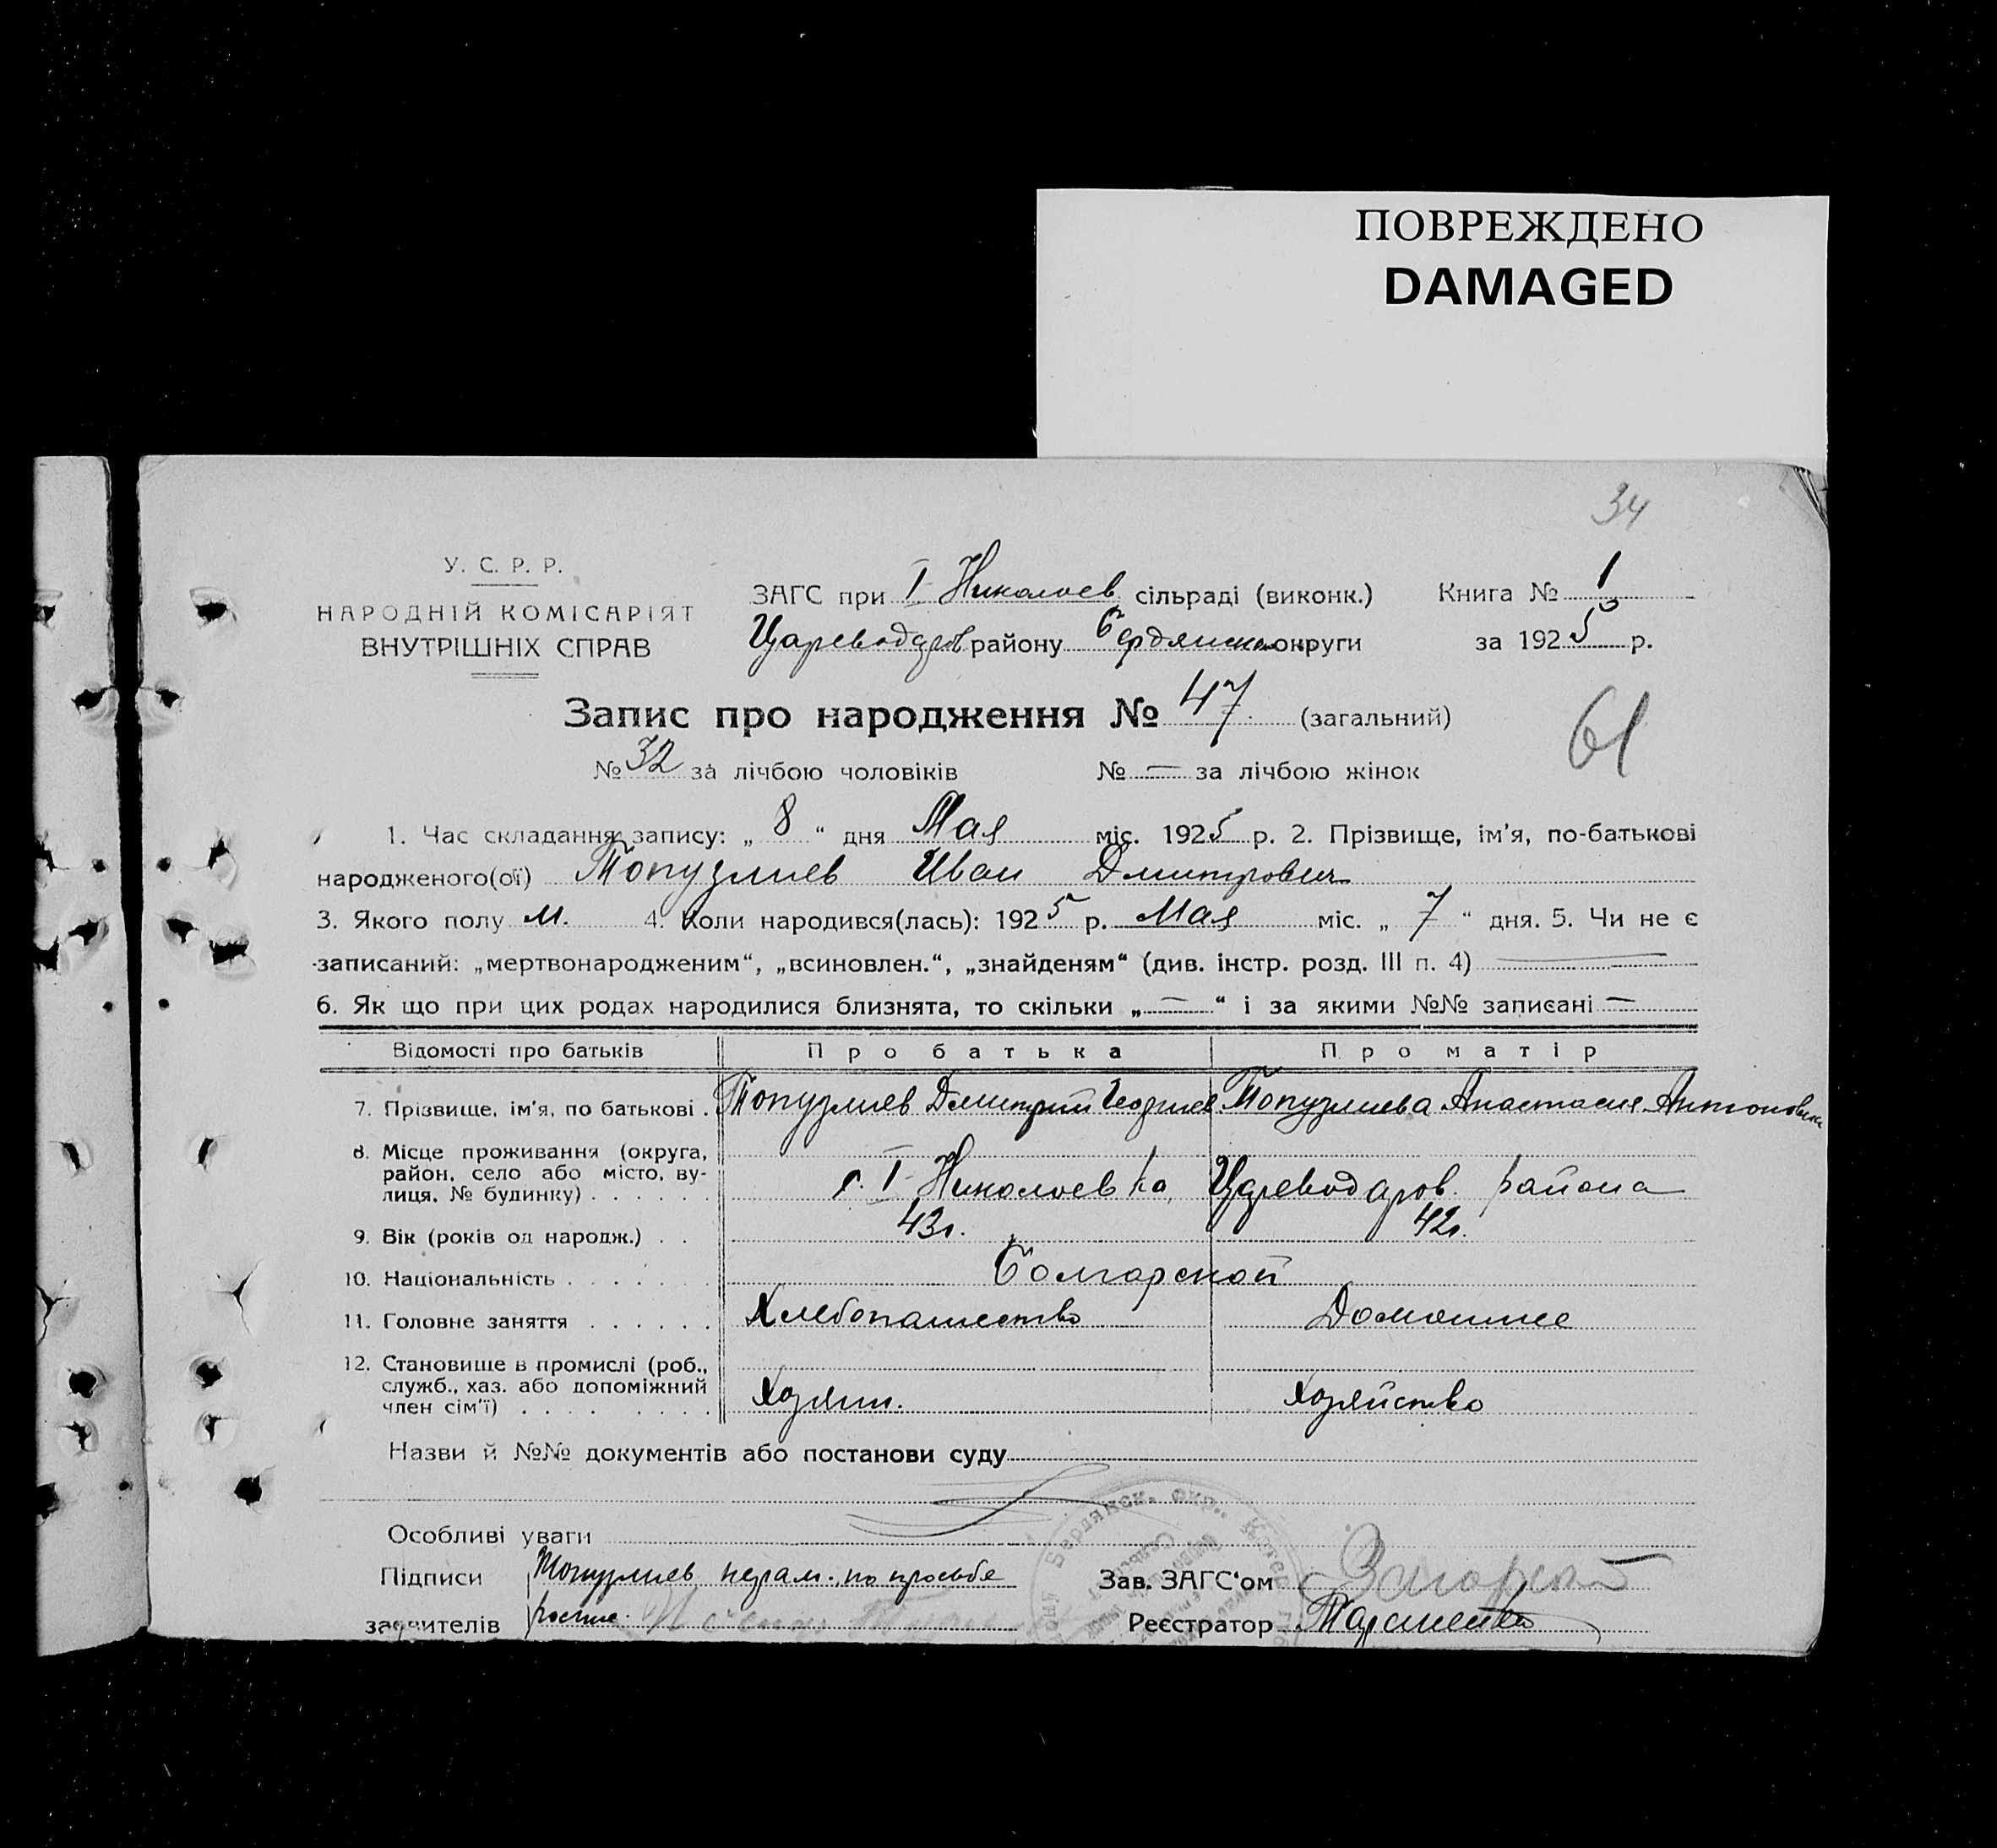 ПОВРЕЖДЕНО
DAMAGED
34
У. С. Р. Р.
НАРОДНІЙ КОМІСАРІЯТ
ВНУТРІШНІХ СПРАВ
ЗАГС при I Николаев сільраді (виконк.) Книга № 1
Цареводаров району Бердянско округи за 1925 р.
Запис про народження № 47 (загальний)
61
№ 32 за лічбою чоловіків № — за лічбою жінок
1. Час складання запису: „ 8 “ дня Мая міс. 1925 р. 2. Прізвище, ім'я, по-батькові
народженого(ої) Топузлиев Иван Дмитрович
3. Якого полу м. 4. Коли народився(лась): 1925 р. Мая міс. „ 7 “ дня. 5. Чи не є
записаний: „мертвонародженим“, „всиновлен.“, „знайденям“ (див. інстр. розд. III п. 4) —
6. Як що при цих родах народилися близнята, то скільки „ — “ і за якими №№ записані —
Відомості про батьків Про батька Про матір
7. Прізвище, ім'я, по батькові . Топузлиев Дмитрий Георгиев Топузлиева Анастасия Антоновна
8. Місце проживання (округа,
район, село або місто, ву-
лиця, № будинку) . . . . . . с. I Николаевка, Цареводаров. района
9. Вік (років од народж.) . . 43 г. 42 г.
10. Національність . . . . . . . Болгарской
11. Головне заняття . . . . . . Хлебопашество Домашнее
12. Становище в промислі (роб.,
служб., хаз. або допоміжний
член сім'ї) . . . . . . . . Хозяин. Хозяйство
Назви й №№ документів або постанови суду
Особливі уваги
Бердянск. окр.
Підписи Топузлиев неграм. по просьбе
заявителів роспис.
Зав. ЗАГС‘ом
Реєстратор Тарасенко